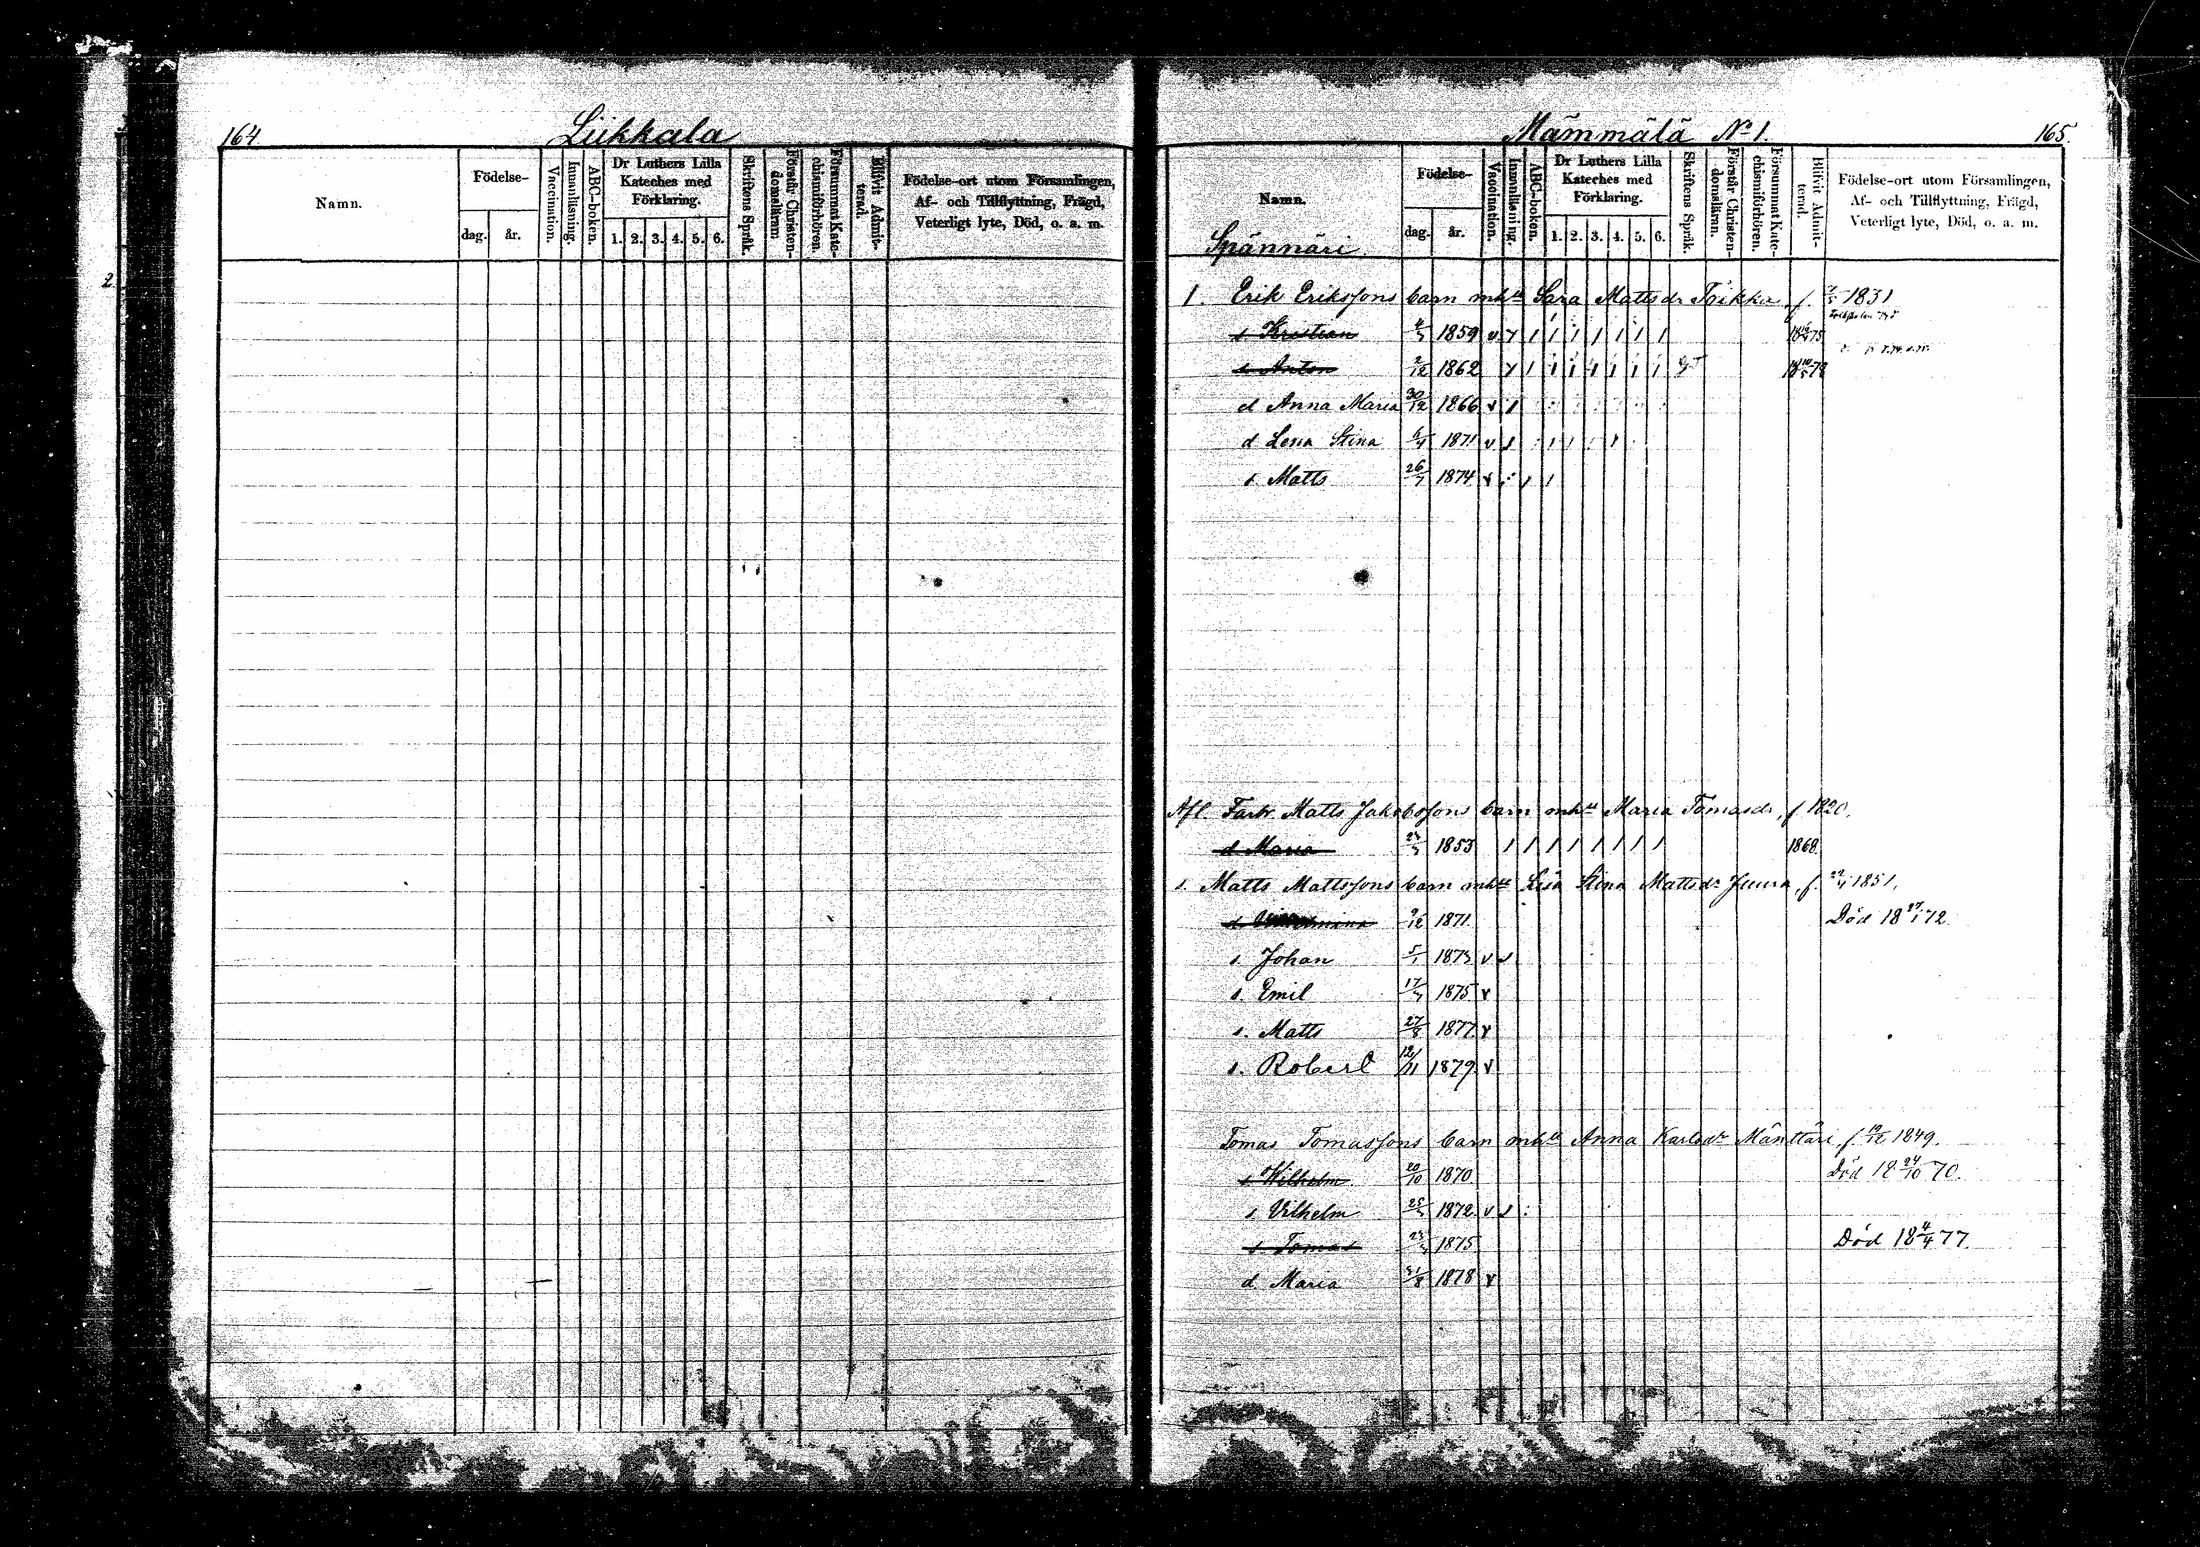 164 Liikkala
Namn. Födelse- dag. år. Vaccination. Innanläsning. ABC-boken. Dr Luthers Lilla Kateches med Förklaring. 1. 2. 3. 4. 5. 6. Skriftens Språk. Förstår Christendomsläran. Försummat Katechismiförhören. Blifvit Admitterad. Födelse-ort utom Församlingen, Af- och Tillflyttning, Frägd, Veterligt lyte, Död, o. a. m.
2
Mämmälä No 1. 165.
Namn. Födelse- dag. år. Vaccination. Innanläsning. ABC-boken. Dr Luthers Lilla Kateches med Förklaring. 1. 2. 3. 4. 5. 6. Skriftens Språk. Förstår Christendomsläran. Försummat Katechismiförhören. Blifvit Admitterad. Födelse-ort utom Församlingen, Af- och Tillflyttning, Frägd, Veterligt lyte, Död, o. a. m.
Spännäri
1. Erik Erikssons barn mh Sara Mattsdr Toikka f. 1831
s. Kristian 1859 v
s Anton 2/12 1862
d Anna Maria 30/12 1866 v
d Lena Stina 6/4 1871 v
s Matts 26/7 1874 v
Afl. Farbr. Matts Jakobssons barn mh Maria Tomasdr, f. 1820.
d Maria 1853 1868.
s. Matts Mattssons barn mh Lisa Stina Mattsdr Juura, f. 1851.
d 9/12 1871. Död 18 27/1 72.
s. Johan 5/1 1873 v
s. Emil 1875 v
s. Matts 27/8 1877. v
s. Robert 12/11 1879. v
Tomas Tomassons barn mh Anna Karlsdr Mänttäri, f. 1849.
s Wilhelm 20/10 1870. Död 18 24/10 70.
s. Vilhelm 1872. v
s Tomas 1875 Död 18 4/4 77.
d. Maria 31/8 1878 v